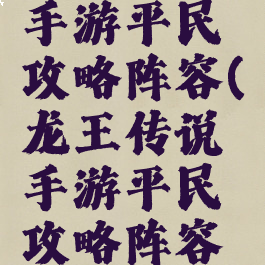 手游平民
攻略阵容(
龙王传说
手游平民
攻略阵容